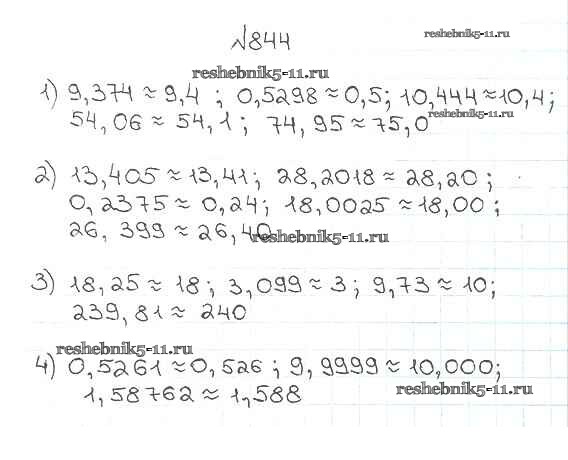 №844
reshebnik5-11.ru
reshebnik5-11.ru
1) 9,374 ≈ 9,4 ; 0,5298 ≈ 0,5; 10,444 ≈ 10,4;
54,06 ≈ 54,1; 74,95 ≈ 75,0
reshebnik5-11.ru
2) 13,405 ≈ 13,41; 28,2018 ≈ 28,20;
0,2375 ≈ 0,24; 18,0025 ≈ 18,00;
26,399 ≈ 26,40
reshebnik5-11.ru
3) 18,25 ≈ 18; 3,099 ≈ 3; 9,73 ≈ 10;
239,81 ≈ 240
reshebnik5-11.ru
4) 0,5261 ≈ 0,526; 9,9999 ≈ 10,000;
reshebnik5-11.ru
1,58762 ≈ 1,588